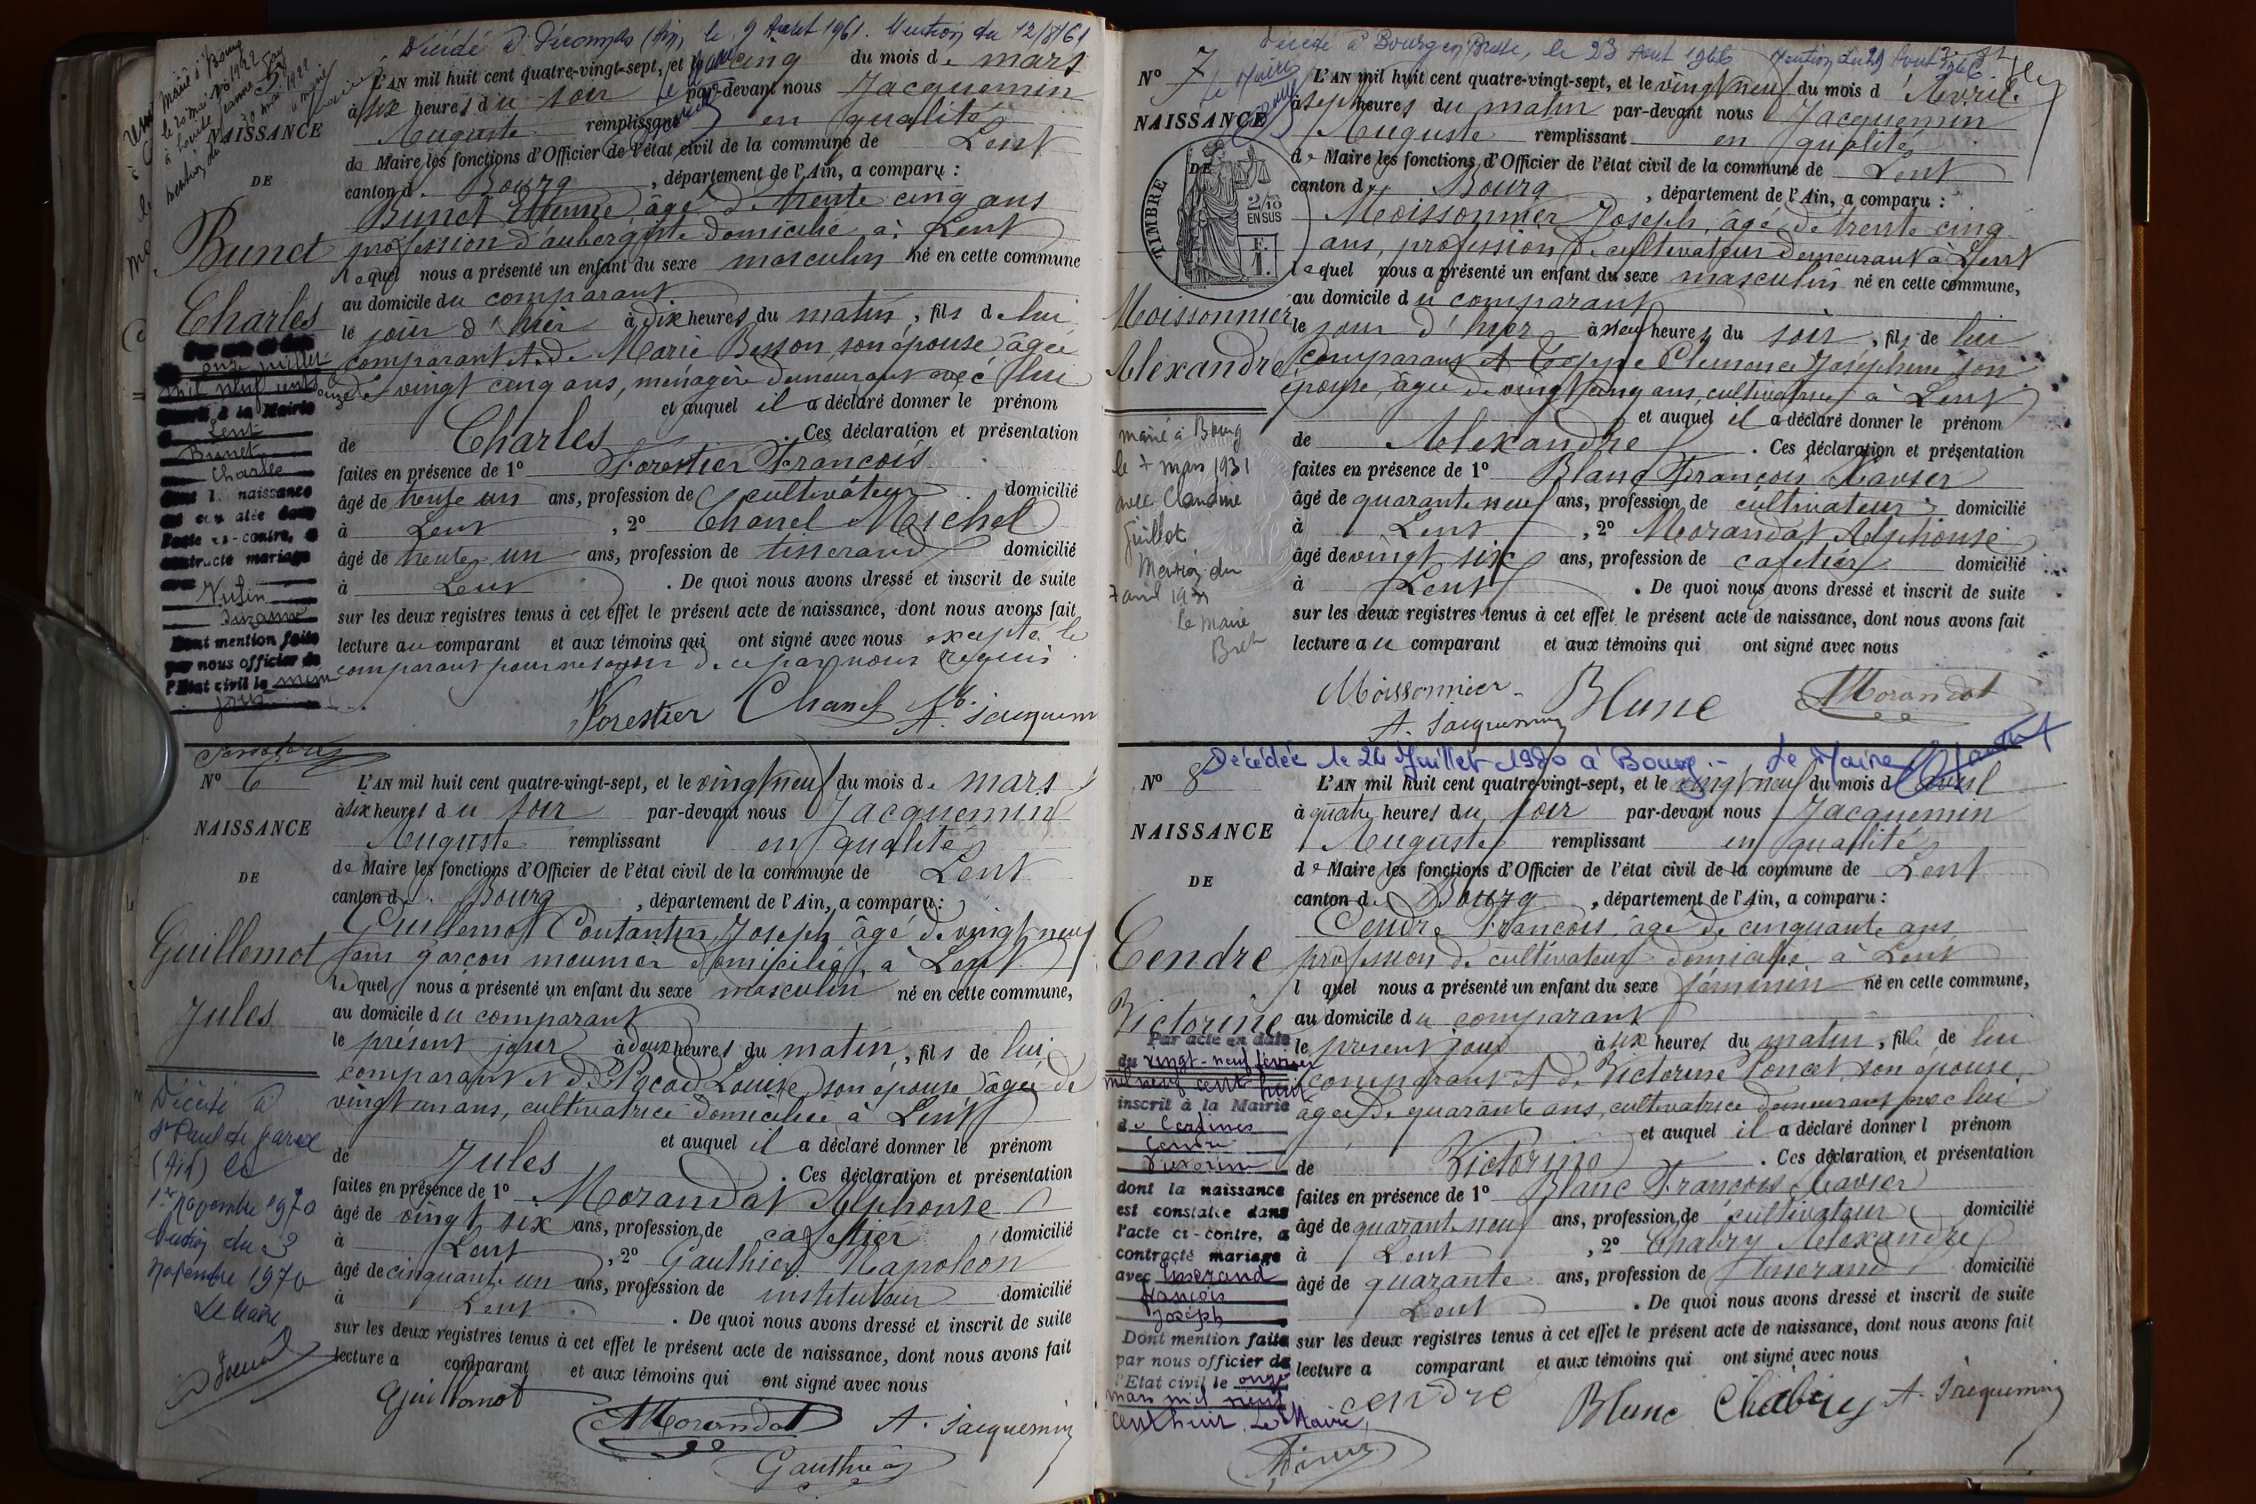 Décédé à (Ain) le 9 Août 1961. Mention du 12/8/61
NAISSANCE
DE
Bunet
Charles
onze juillet
mil neuf cent onze
à la Mairie
Lent
Bunet
Charles
dont la naissance
est constatée dans
l'acte ci-contre, a
contracté mariage
avec
Suzanne
Dont mention faite
par nous officier de
l'Etat civil le même
jour
L'AN mil huit cent quatre-vingt-sept, et le cinq du mois de mars
à six heures du soir par-devant nous Jacquemin
Auguste remplissant en qualité
de Maire les fonctions d'Officier de l'état civil de la commune de Lent
canton de Bourg, département de l'Ain, a comparu :
Bunet Etienne, âgé de trente cinq ans
profession d'aubergiste domicilié à Lent
lequel nous a présenté un enfant du sexe masculin né en cette commune
au domicile du comparant
le jour d'hier à dix heures du matin, fils de lui
comparant et de Marie Besson, son épouse âgée
de vingt cinq ans, ménagère demeurant avec lui
et auquel il a déclaré donner le prénom
de Charles. Ces déclaration et présentation
faites en présence de 1° Forestier François
âgé de trente un ans, profession de cultivateur domicilié
à Lent, 2° Chanel Michel
âgé de trente un ans, profession de tisserand domicilié
à Lent. De quoi nous avons dressé et inscrit de suite
sur les deux registres tenus à cet effet le présent acte de naissance, dont nous avons fait
lecture au comparant et aux témoins qui ont signé avec nous excepté le
comparant pour ne savoir de ce par nous requis
Forestier Chanel M. A. Jacquemin
N° 6
NAISSANCE
DE
Guillemot
Jules
Décédé à
St Paul de Varax
(Ain) le
1er Novembre 1970
Mention du 3
Novembre 1970
Le Maire
L'AN mil huit cent quatre-vingt-sept, et le vingt neuf du mois de mars
à six heures du soir par-devant nous Jacquemin
Auguste remplissant en qualité
de Maire les fonctions d'Officier de l'état civil de la commune de Lent
canton de Bourg, département de l'Ain, a comparu :
Guillemot Constantin Joseph âgé de vingt neuf
ans garçon meunier domicilié à Lent
lequel nous a présenté un enfant du sexe masculin né en cette commune,
au domicile du comparant
le présent jour à deux heures du matin, fils de lui
comparant et de Louise son épouse âgée de
vingt un ans, cultivatrice domiciliée à Lent
et auquel il a déclaré donner le prénom
de Jules. Ces déclaration et présentation
faites en présence de 1° Morandat Alphonse
âgé de vingt six ans, profession de cafetier domicilié
à Lent, 2° Gauthier Napoléon
âgé de cinquante un ans, profession de instituteur domicilié
à Lent. De quoi nous avons dressé et inscrit de suite
sur les deux registres tenus à cet effet le présent acte de naissance, dont nous avons fait
lecture a comparant et aux témoins qui ont signé avec nous
Guillemot
AMorandat A. Jacquemin
Gauthier
Décédé à Bourg en Bresse, le 23 Août 1966 Mention du 29 Août 1966
N° 7
Le Maire
NAISSANCE
DE
TIMBRE
2/10
EN SUS
F.
1.
Moissonnier
Alexandre
marié à Bourg
le 7 mars 1931
avec Claudine
Guillot
Mention du
7 avril 1931
Le Maire
L'AN mil huit cent quatre-vingt-sept, et le vingt neuf du mois d'Avril
à sept heures du matin par-devant nous Jacquemin
Auguste remplissant en qualité
de Maire les fonctions d'Officier de l'état civil de la commune de Lent
canton de Bourg, département de l'Ain, a comparu :
Moissonnier Joseph, âgé de trente cinq
ans, profession de cultivateur demeurant à Lent
lequel nous a présenté un enfant du sexe masculin né en cette commune,
au domicile du comparant
le jour d'hier à neuf heures du soir, fils de lui
comparant et Teppe Clémence Joséphine son
épouse, âgée de vingt cinq ans, cultivatrice à Lent
et auquel il a déclaré donner le prénom
de Alexandre. Ces déclaration et présentation
faites en présence de 1° Blanc François Xavier
âgé de quarante neuf ans, profession de cultivateur domicilié
à Lent, 2° Morandat Alphonse
âgé de vingt six ans, profession de cafetier domicilié
à Lent. De quoi nous avons dressé et inscrit de suite
sur les deux registres tenus à cet effet le présent acte de naissance, dont nous avons fait
lecture au comparant et aux témoins qui ont signé avec nous
Moissonnier Blanc AMorandat
A. Jacquemin
Décédée le 24 Juillet 1980 à Bourg. - Le Maire
N° 8
NAISSANCE
DE
Cendre
Victorine
Par acte en date
du vingt-neuf février
mil neuf cent huit
inscrit à la Mairie
de Certines
Cendre
Victorine
dont la naissance
est constatée dans
l'acte ci-contre, a
contracté mariage
avec Tisserand
François
Joseph
Dont mention faite
par nous officier de
l'Etat civil le onze
mars mil neuf
cent huit. Le Maire,
L'AN mil huit cent quatre-vingt-sept, et le vingt neuf du mois d'Avril
à quatre heures du soir par-devant nous Jacquemin
Auguste remplissant en qualité
de Maire les fonctions d'Officier de l'état civil de la commune de Lent
canton de Bourg, département de l'Ain, a comparu :
Cendre François, âgé de cinquante ans
profession de cultivateur domicilié à Lent
l quel nous a présenté un enfant du sexe féminin né en cette commune,
au domicile du comparant
le présent jour à six heures du matin, fille de lui
comparant et de Victorine Poncet, son épouse,
âgée de quarante ans, cultivatrice demeurant avec lui
et auquel il a déclaré donner l prénom
de Victorine. Ces déclaration et présentation
faites en présence de 1° Blanc François Xavier
âgé de quarante neuf ans, profession de cultivateur domicilié
à Lent, 2° Chabry Alexandre
âgé de quarante ans, profession de tisserand domicilié
Lent. De quoi nous avons dressé et inscrit de suite
sur les deux registres tenus à cet effet le présent acte de naissance, dont nous avons fait
lecture a comparant et aux témoins qui ont signé avec nous
Cendre Blanc Chabry A. Jacquemin